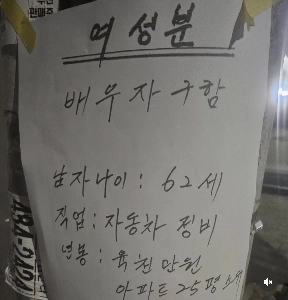 판매주
여 성분
배 우 자 구 함
남자나이 : 62세
직업 : 자동차 정비
연봉 : 육천만원
아파트 25평